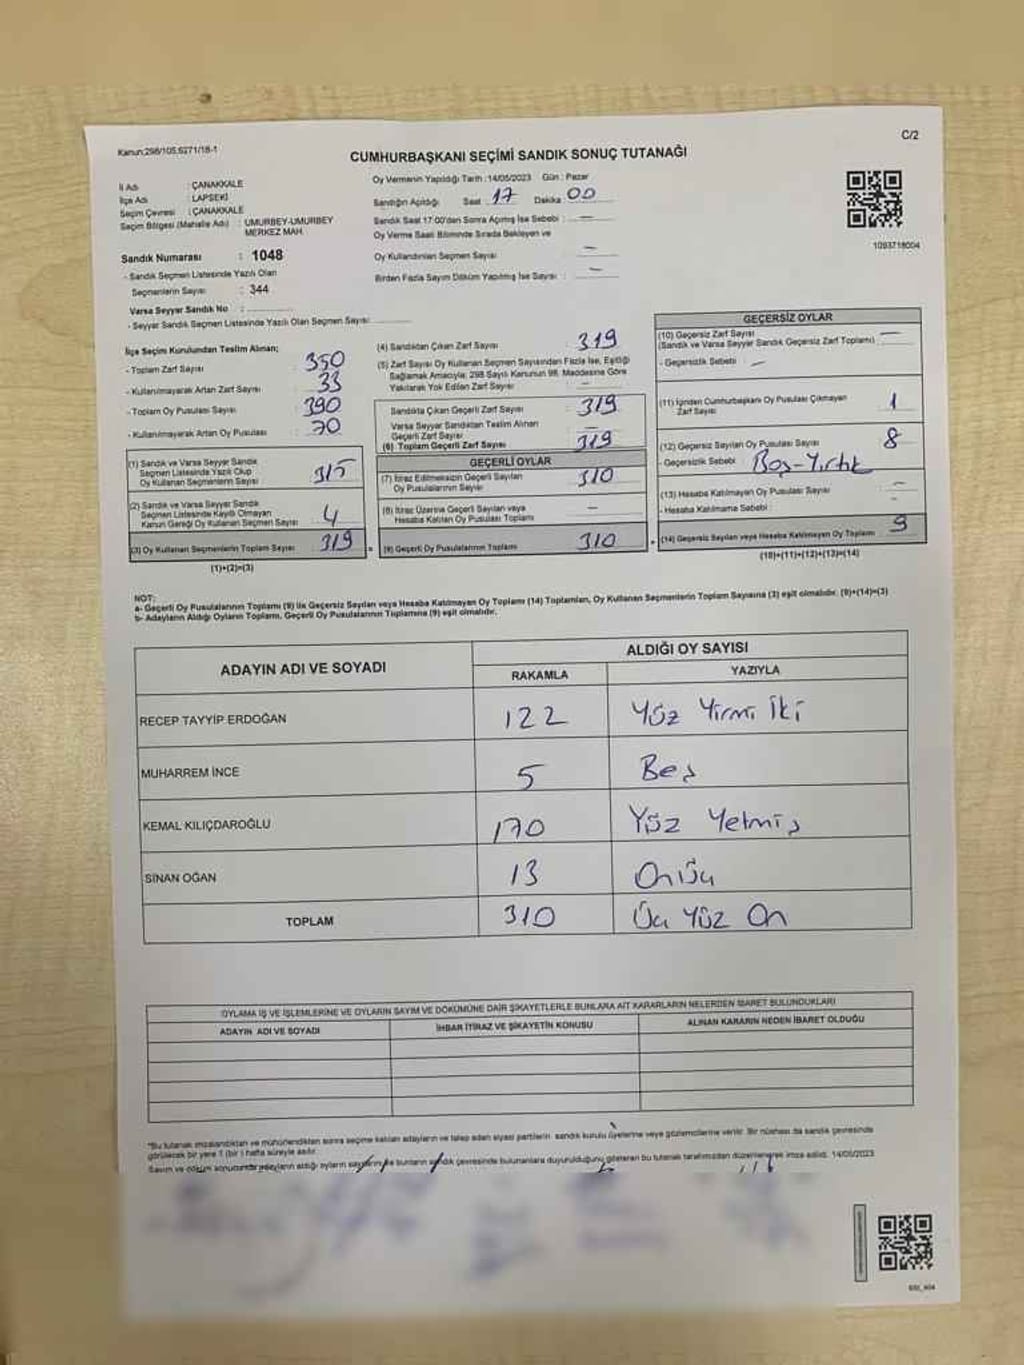 Kanun:298/105,6271/18-1
C/2
CUMHURBAŞKANI SEÇİMİ SANDIK SONUÇ TUTANAĞI
İl Adı : ÇANAKKALE
İlçe Adı : LAPSEKİ
Seçim Çevresi : ÇANAKKALE
Seçim Bölgesi (Mahalle Adı) : UMURBEY-UMURBEY
MERKEZ MAH.
Sandık Numarası : 1048
- Sandık Seçmen Listesinde Yazılı Olan
Seçmenlerin Sayısı : 344
Varsa Seyyar Sandık No :
- Seyyar Sandık Seçmen Listesinde Yazılı Olan Seçmen Sayısı:
Oy Vermenin Yapıldığı Tarih :14/05/2023 Gün : Pazar
Sandığın Açıldığı Saat : 17 Dakika 00
Sandık Saat 17:00'den Sonra Açılmış İse Sebebi : —
Oy Verme Saati Bitiminde Sırada Bekleyen ve
Oy Kullandırılan Seçmen Sayısı —
Birden Fazla Sayım Döküm Yapılmış İse Sayısı : —
1093718004
İlçe Seçim Kurulundan Teslim Alınan;
- Toplam Zarf Sayısı : 350
- Kullanılmayarak Artan Zarf Sayısı : 33
- Toplam Oy Pusulası Sayısı : 390
- Kullanılmayarak Artan Oy Pusulası : 70
(1) Sandık ve Varsa Seyyar Sandık
Seçmen Listesinde Yazılı Olup
Oy Kullanan Seçmenlerin Sayısı : 315
(2) Sandık ve Varsa Seyyar Sandık
Seçmen Listesinde Kayıtlı Olmayan
Kanun Gereği Oy Kullanan Seçmen Sayısı : 4
(3) Oy Kullanan Seçmenlerin Toplam Sayısı : 319
(1)+(2)=(3)
(4) Sandıktan Çıkan Zarf Sayısı : 319
(5) Zarf Sayısı Oy Kullanan Seçmen Sayısından Fazla İse, Eşitliği
Sağlamak Amacıyla; 298 Sayılı Kanunun 98. Maddesine Göre
Yakılarak Yok Edilen Zarf Sayısı : —
Sandıkta Çıkan Geçerli Zarf Sayısı : 319
Varsa Seyyar Sandıktan Teslim Alınan
Geçerli Zarf Sayısı : —
(6) Toplam Geçerli Zarf Sayısı : 319
GEÇERLİ OYLAR
(7) İtiraz Edilmeksizin Geçerli Sayılan
Oy Pusulalarının Sayısı : 310
(8) İtiraz Üzerine Geçerli Sayılan veya
Hesaba Katılan Oy Pusulası Toplamı : —
(9) Geçerli Oy Pusulalarının Toplamı : 310
GEÇERSİZ OYLAR
(10) Geçersiz Zarf Sayısı —
(Sandık ve Varsa Seyyar Sandık Geçersiz Zarf Toplamı)
- Geçersizlik Sebebi : —
(11) İçinden Cumhurbaşkanı Oy Pusulası Çıkmayan
Zarf Sayısı : 1
(12) Geçersiz Sayılan Oy Pusulası Sayısı : 8
- Geçersizlik Sebebi : Boş-Yırtık
(13) Hesaba Katılmayan Oy Pusulası Sayısı : —
- Hesaba Katılmama Sebebi : -
(14) Geçersiz Sayılan veya Hesaba Katılmayan Oy Toplamı : 9
(10)+(11)+(12)+(13)=(14)
NOT:
a- Geçerli Oy Pusulalarının Toplamı (9) ile Geçersiz Sayılan veya Hesaba Katılmayan Oy Toplamı (14) Toplamları, Oy Kullanan Seçmenlerin Toplam Sayısına (3) eşit olmalıdır. (9)+(14)=(3)
b- Adayların Aldığı Oyların Toplamı, Geçerli Oy Pusulalarının Toplamına (9) eşit olmalıdır.
ADAYIN ADI VE SOYADI
ALDIĞI OY SAYISI
RAKAMLA YAZIYLA
RECEP TAYYİP ERDOĞAN 122 Yüz Yirmi İki
MUHARREM İNCE 5 Beş
KEMAL KILIÇDAROĞLU 170 Yüz Yetmiş
SİNAN OĞAN 13 Onüç
TOPLAM 310 Üç Yüz On
OYLAMA İŞ VE İŞLEMLERİNE VE OYLARIN SAYIM VE DÖKÜMÜNE DAİR ŞİKAYETLERLE BUNLARA AİT KARARLARIN NELERDEN İBARET BULUNDUKLARI
ADAYIN ADI VE SOYADI İHBAR İTİRAZ VE ŞİKAYETİN KONUSU ALINAN KARARIN NEDEN İBARET OLDUĞU
*Bu tutanak imzalandıktan ve mühürlendikten sonra seçime katılan adayların ve talep eden siyasi partilerin sandık kurulu üyelerine veya gözlemcilerine verilir. Bir nüshası da sandık çevresinde
görülecek bir yere 1 (bir ) hafta süreyle asılır.
Sayım ve döküm sonucunda adayların aldığı oyların sayılarını ve bunların sandık çevresinde bulunanlara duyurulduğunu gösteren bu tutanak tarafımızdan düzenlenerek imza edildi. 14/05/2023